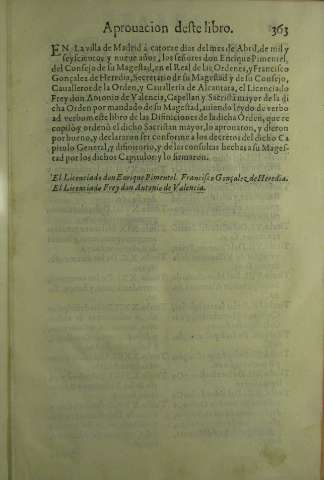 Aprouacion deste libro. 363
EN La villa de Madrid à catorze dias del mes de Abril, de mil y
seyscientos y nueue años, los señores don Enrique Pimentel,
del Consejo de su Magestad, en el Real de las Ordenes, y Francisco
Gonçalez de Heredia, Secretario de su Magestad y de su Consejo,
Caualleros de la Orden, y Caualleria de Alcantara, el Licenciado
Frey don Antonio de Valencia, Capellan y Sacristã mayor de la di
cha Orden por mandado de su Magestad, auiendo leydo de verbo
ad verbum este libro de las Difiniciones de la dicha Orden, que re
copilò y ordenò el dicho Sacristan mayor, lo aprouaron, y dieron
por bueno, y declararon ser conforme a los decretos del dicho Ca
pitulo General, y difinitorio, y de las consultas hechas a su Mages-
tad por los dichos Capitulos y lo firmaron.
El Licenciado don Enrique Pimentel. Francisco Gonçalez de Heredia.
El Licenciado Frey don Antonio de Valencia.